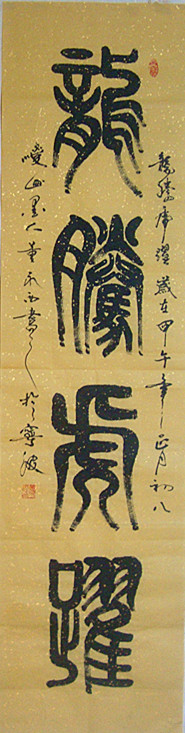 龍騰虎躍
龍騰虎躍 歲在甲午年正月初八
山墨人董 書 於寧波